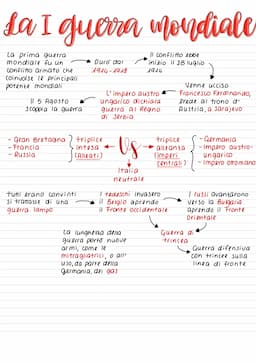 La I guerra mondiale
La prima guerra
mondiale fu un
conflitto armato che
coinvolse le principali
potenze mondiali
Durò dal
1914 - 1918
Il conflitto ebbe
inizio il 28 luglio
1914
Venne ucciso
Francesco Ferdinando,
erede al trono d'
Austria, a Sarajevo
L'impero austro
ungarico dichiara
guerra al Regno
di Serbia
Il 5 Agosto
scoppia la guerra
- Gran Bretagna
- Francia
- Russia
triplice
intesa
(alleati)
Vs
triplice
alleanza
(imperi
centrali)
- Germania
- Impero austro-
ungarico
- Impero ottomano
Italia
neutrale
Tutti erano convinti
si trattasse di una
guerra lampo
I tedeschi invasero
il Belgio aprendo
il Fronte occidentale
I russi avanzarono
verso la Bulgaria
aprendo il Fronte
orientale
Guerra di
trincea
La lunghezza della
guerra portò nuove
armi, come le
mitragliatrici, o all'
uso, da parte della
Germania, dei gas
Guerra difensiva
con trincee sulla
linea di fronte